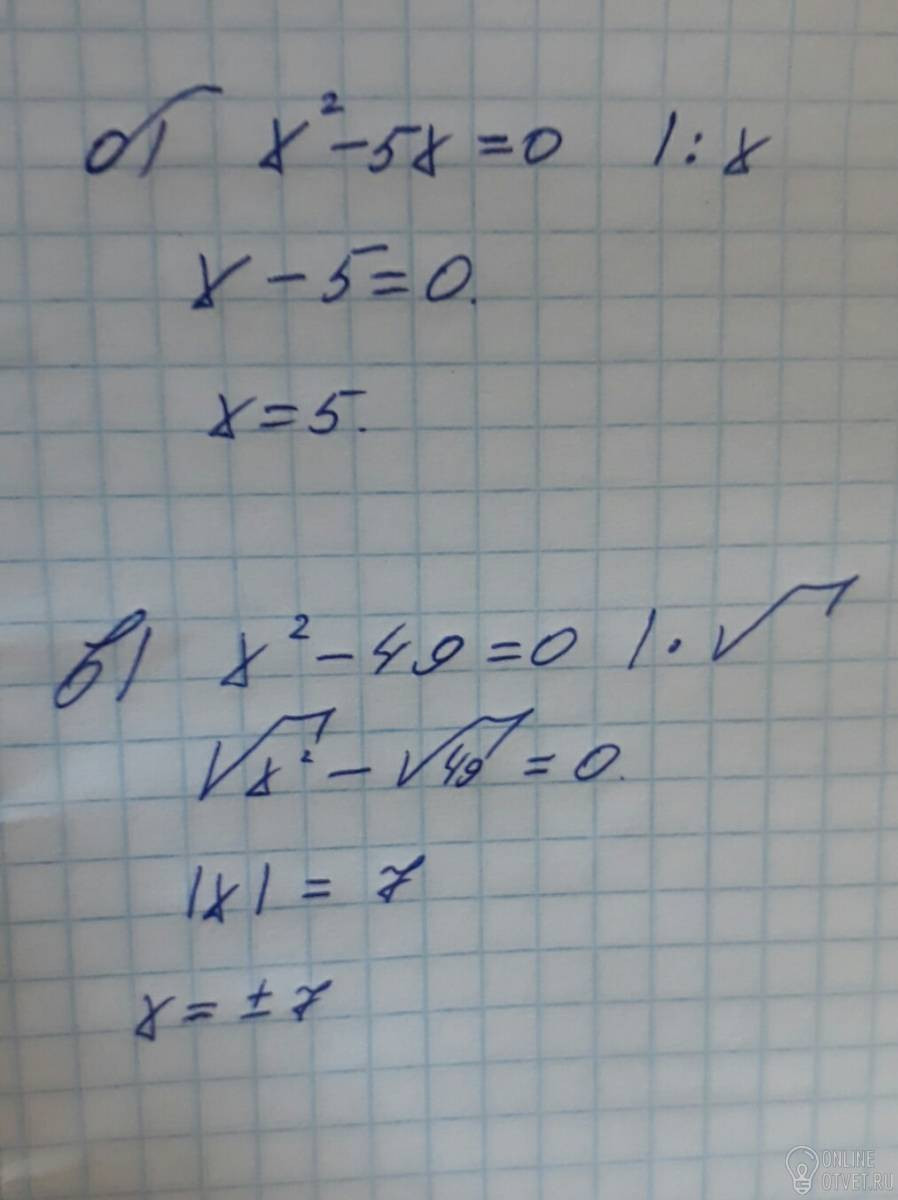 б) x² - 5x = 0 | : x
x - 5 = 0.
x = 5.
в) x² - 49 = 0 | · √
√x² - √49 = 0.
|x| = 7
x = ± 7
ONLINE
OTVET.RU